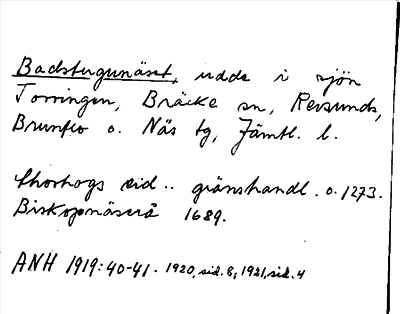 Badstugunäset, udde i sjön
Torringen, Bräcke sn, Revsunds,
Brunflo o. Näs tg, Jämtl. l.
Skorhogs eid .. gränshandl. o. 1273.
Biskopnäset 1689.
ANH 1919: 40-41. 1920, sid. 8; 1921, sid. 4